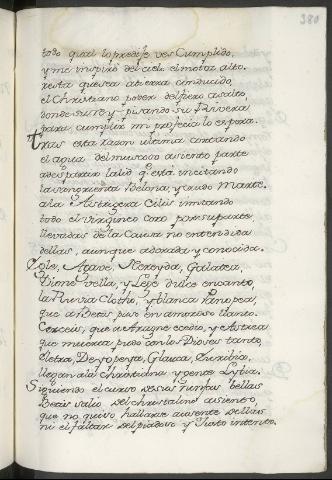 380
todo qual lo predije ves Cumplido,
y me inspiró del cielo el motor alto.
resta que sea a tierra conducido
el Christiano poder del fiero asalto,
donde surto y pisando su Rivera
para cumplir mi profecia lo espera.
tras esta razon ultima cortando
el agua del muscoso asiento parte
a despartir la lid q està incitando
la sangrienta Belona, y crudo Marte.
a la Astrigera Cilis imitando
todo el virgineo coro por su parte,
llevadas de la Causa no entendida
dellas, aunque adorada y conocida.
Yole, Agave, Nereyda, Galatea,
vella, y dulce encanto,
la Ruvia Clotho, y blanca Panopea,
que a Betis puso en amoroso llanto.
que a Aragne ecedio, y Astrea
que muerta pudo con los Dioses tanto,
Deyopeya, Glauca,
llegan a la christiana gente
Siguiendo el curso destas ninfas bellas
Betis salio del christalino asiento,
que no quiso hallarse ausente dellas
ni el faltar del piadoso y Justo intento.